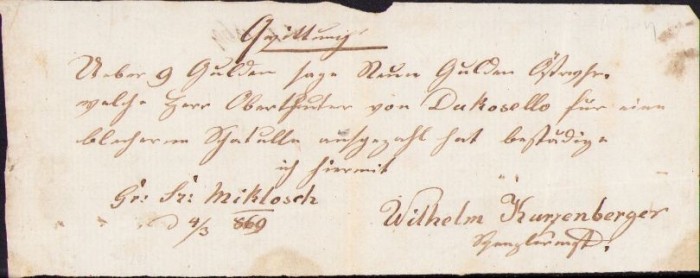 Quittung
Ueber 9 Gulden sage Neun Gulden Östrwhr.
welche Herr Oberleuter von Dukosello für eine
blecherne Schatulle ausgezahl hat bestädige
ich hiermit
Gr: Sz: Miklosch
d 4/3 869
Wilhelm Kurzenberger
Spenglermst.